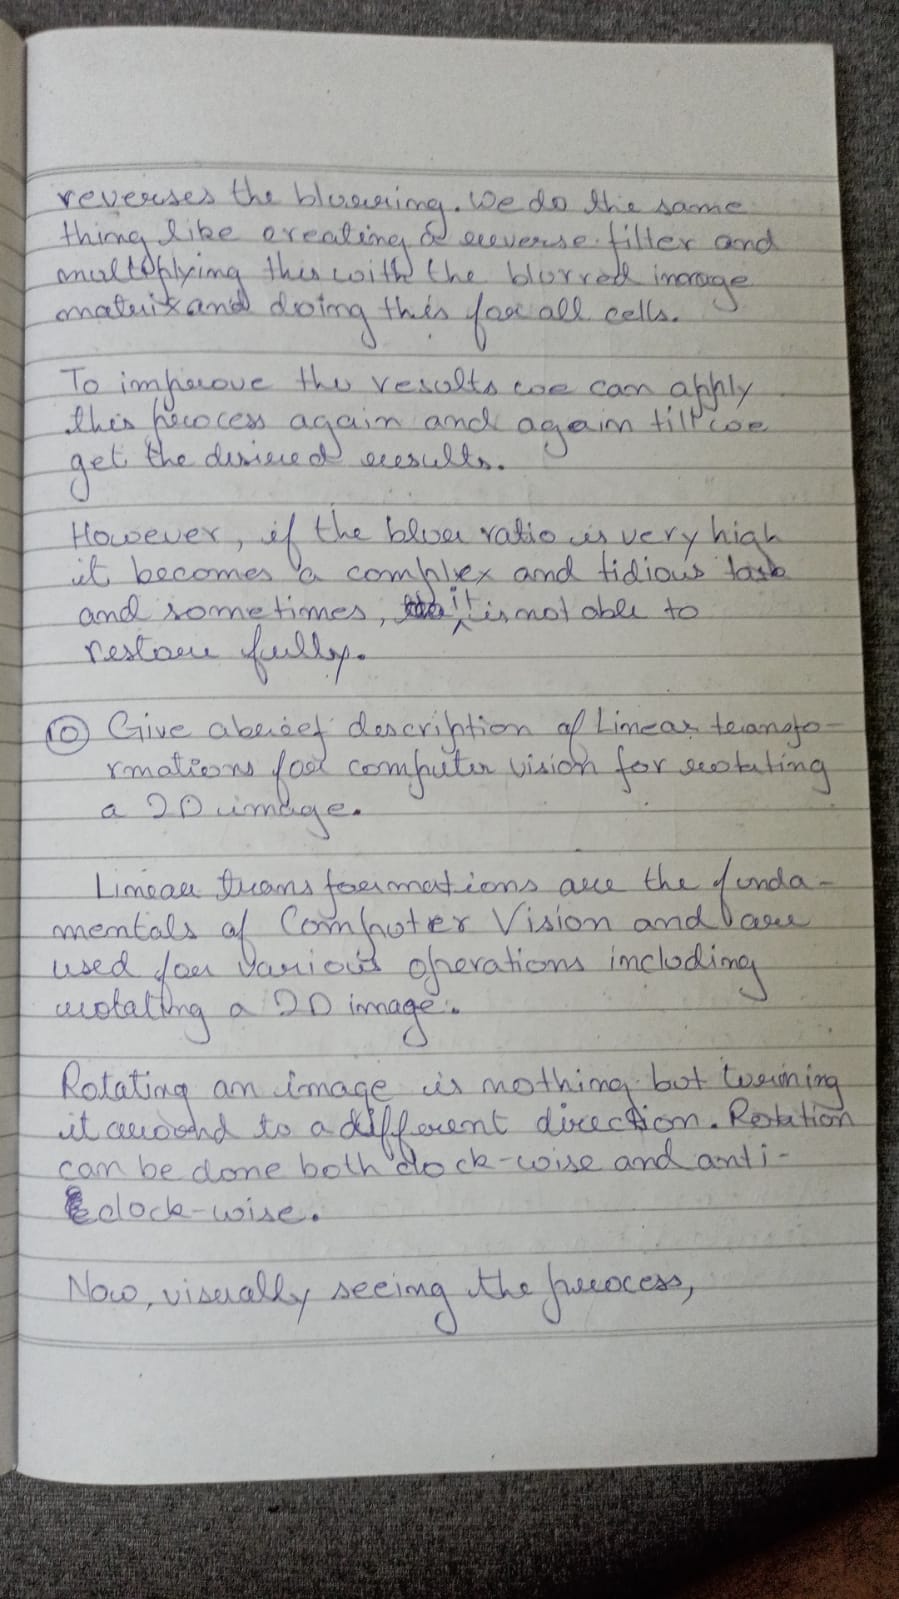 reverses the blurring. We do the same
thing like creating a reverse filter and
multiplying this with the blurred image
matrix and doing this for all cells.
To improve the results we can apply
this process again and again till we
get the desired results.
However, if the blur ratio is very high
it becomes a complex and tidious task
and sometimes, it is not able to
restore fully.
10 Give a brief description of Linear transfo-
rmations for computer vision for rotating
a 2D image.
Linear transformations are the funda-
mentals of Computer Vision and are
used for various operations including
rotating a 2D image.
Rotating an image is nothing but turning
it around to a different direction. Rotation
can be done both clock-wise and anti-
clock-wise.
Now, visually seeing the process,